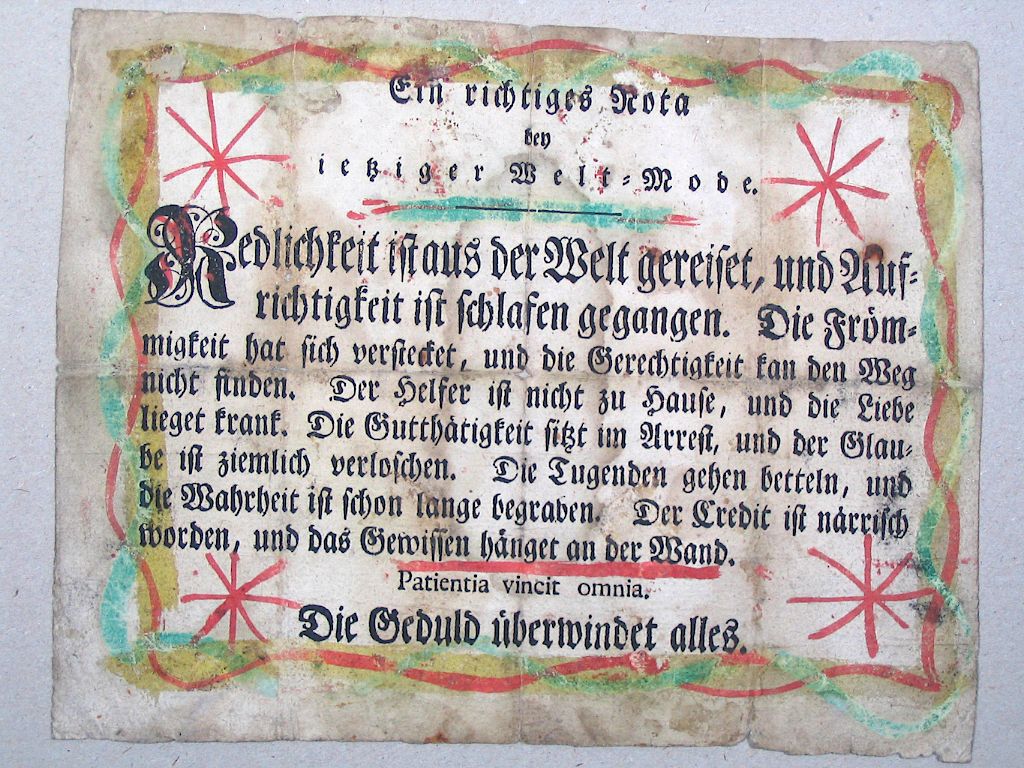 Ein richtiges Nota
bey
ietziger Welt-Mode.
Redlichkeit ist aus der Welt gereiset, und Auf-
richtigkeit ist schlafen gegangen. Die Fröm-
migkeit hat sich verstecket, und die Gerechtigkeit kan den Weg
nicht finden. Der Helfer ist nicht zu Hause, und die Liebe
lieget krank. Die Gutthätigkeit sitzt im Arrest, und der Glau-
be ist ziemlich verloschen. Die Tugenden gehen betteln, und
die Wahrheit ist schon lange begraben. Der Credit ist närrisch
worden, und das Gewissen hänget an der Wand.
Patientia vincit omnia.
Die Geduld überwindet alles.